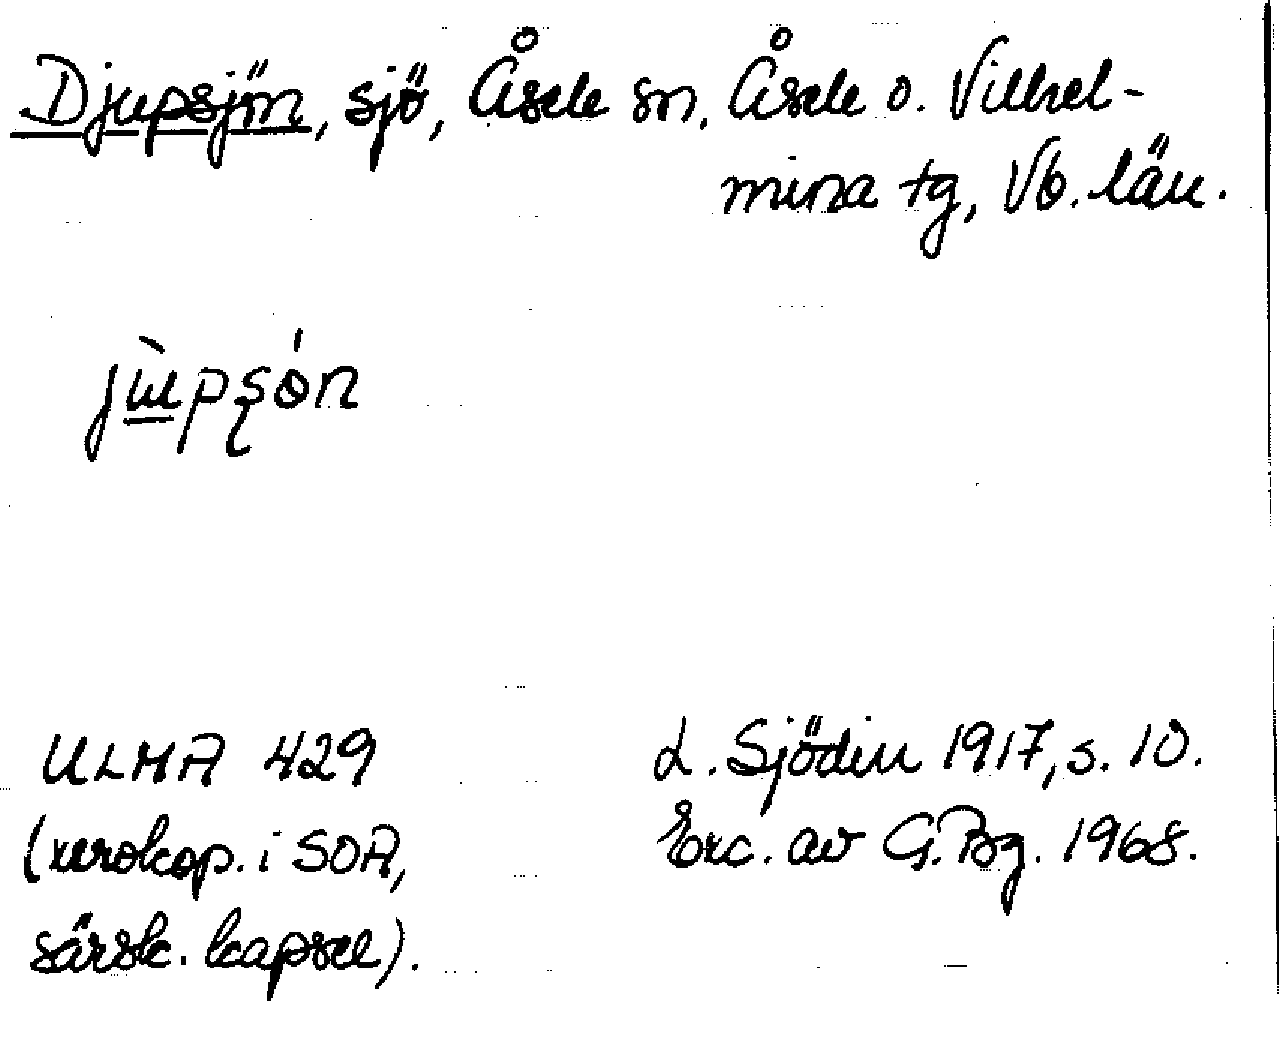 Djupsjön, sjö, Åsele sn, Åsele o. Vilhel-
mina tg, Vb. län.
ULMA 429
(xerokop. i SOA,
särsk. kapsel).
L. Sjödin 1917, s. 10.
Exc. av G. Bg. 1968.